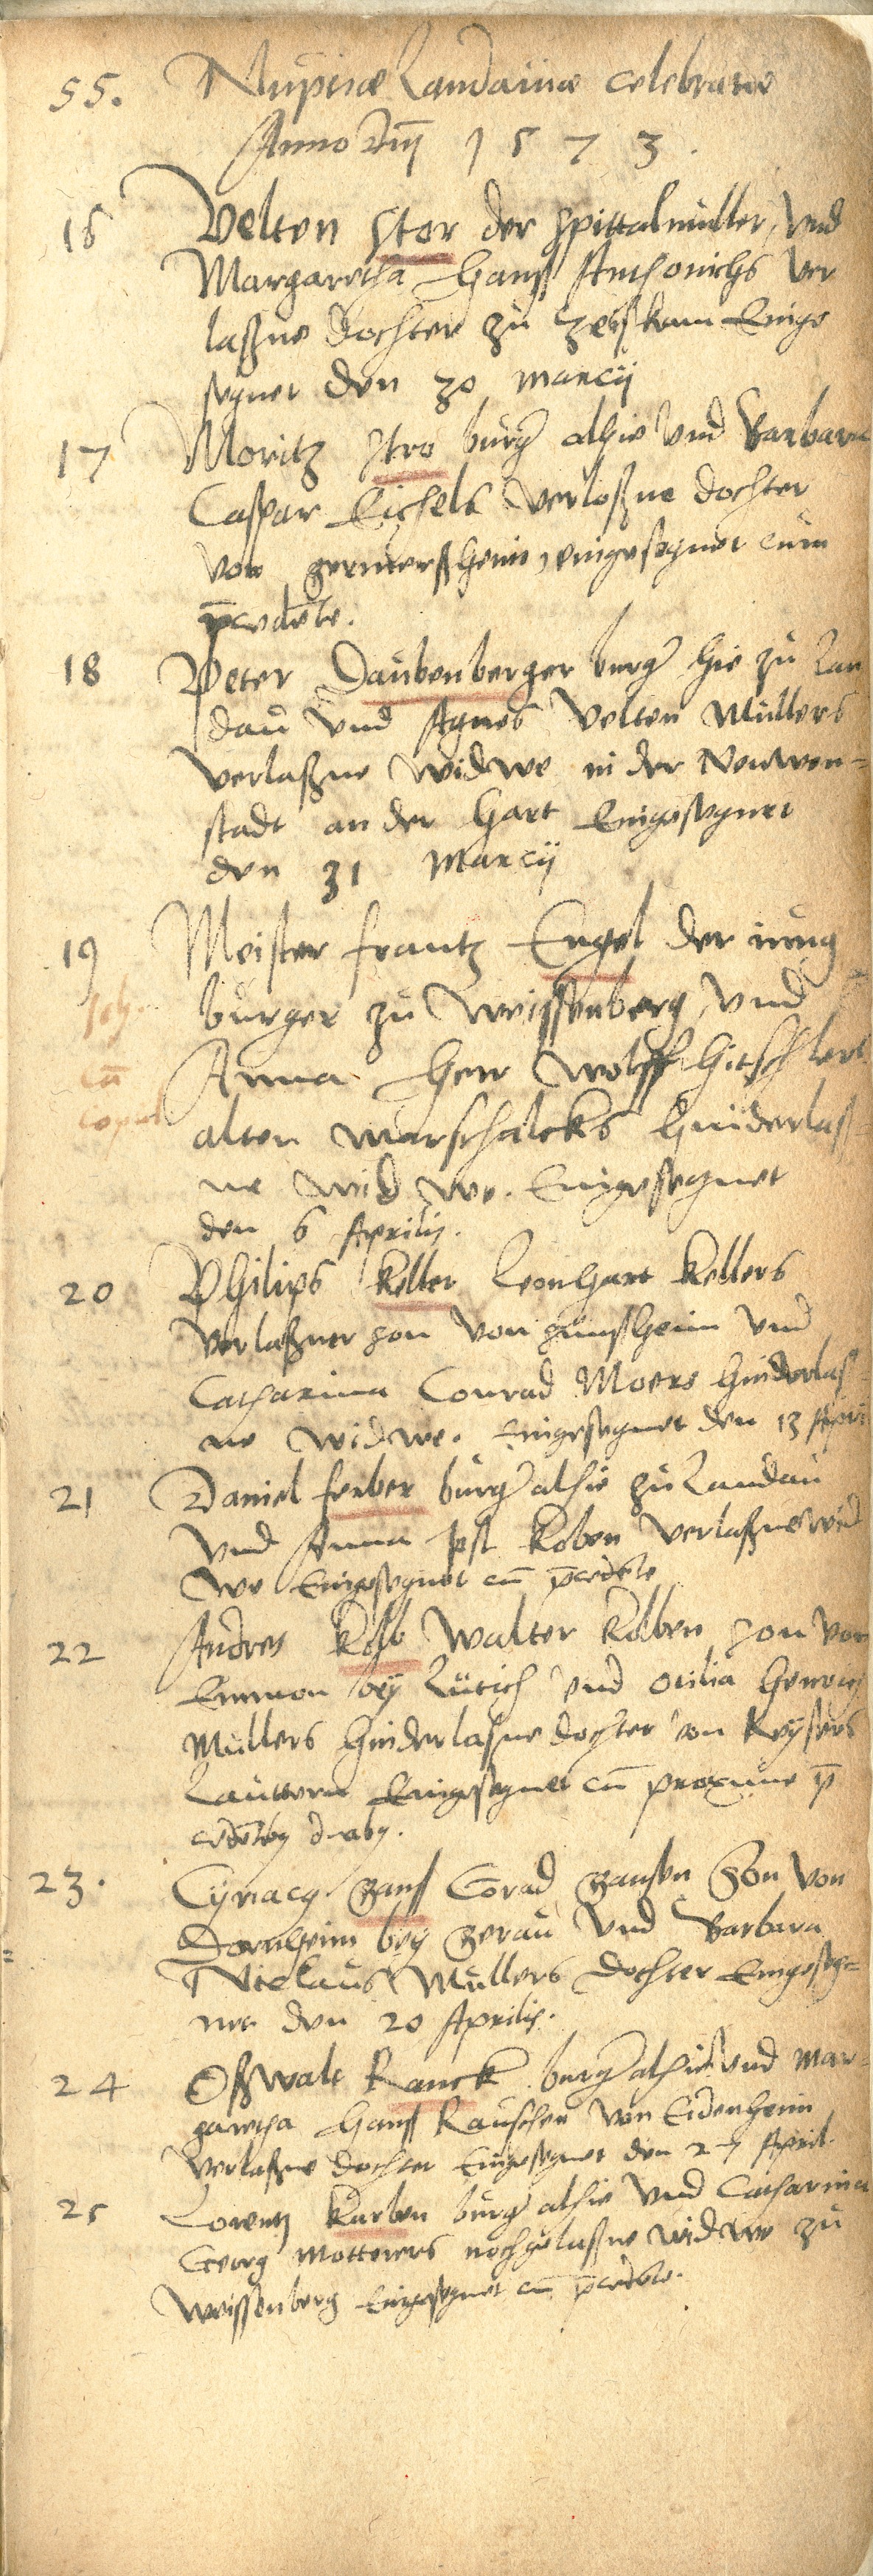 55. Nuptiæ Landavinæ celebratæ
Anno 1573.
16 Velten Stor der Spittalmüller, und
Margaretha Hans Anthonichs ver
laßne dochter zu Zeißkam Einge
segnet den 30 Marcij
17 Moritz Stro burger alhie und Barbara
Caspar Eichels verloßne dochter
von germerßheim, eingesegnet cum
p̄cedēte.
18 Peter Daubenberger burger hie zu Lan
dau und Agnes Velten Müllers
verlaßne widwe in der Neuwen-
stadt an der Hart Eingesegnet
den 31 Marcij
19 Meister frantz Engel der iung
burger zu Weissenberg, und
Anna Herr Wolff
alten marschalcks hinderlaß-
ne widwe. Eingesegnet
den 6 Aprilis.
20 Philips Keller Leonhart Kellers
verlaßner son von und
Catharina Conrad Moers hinderlaß-
ne widwe. Eingesegnet den 13 Apri
21 Daniel ferber burger alhie zu Landau
und Anna Jost Koben verlaßne wid
we Eingesegnet cū p̄cedēte
22 Andres Kolb Walter Kolben son von
bey Lütich und Otilia
Müllers hinderlaßne dochter von Keysers
Lauttern Eingesegnet cū proxime p̄
23. Cyriacy Hans Corad Hansen Son von
Dornheim bey Gerau und Barbara
Niclaus Müllers dochter Eingeseg-
net den 20 Aprilis.
24 Oßwalt Ranck burger alhie und Mar-
garetha Hans Rauschen von Edenheim
verlaßne dochter Eingesegnet den 27 April.
25 Lorentz Kurben burger alhie und Catharina
Georg Motterers nochgelaßne widwe zu
Weissenberg Eingesegnet cū p̄cedēte.